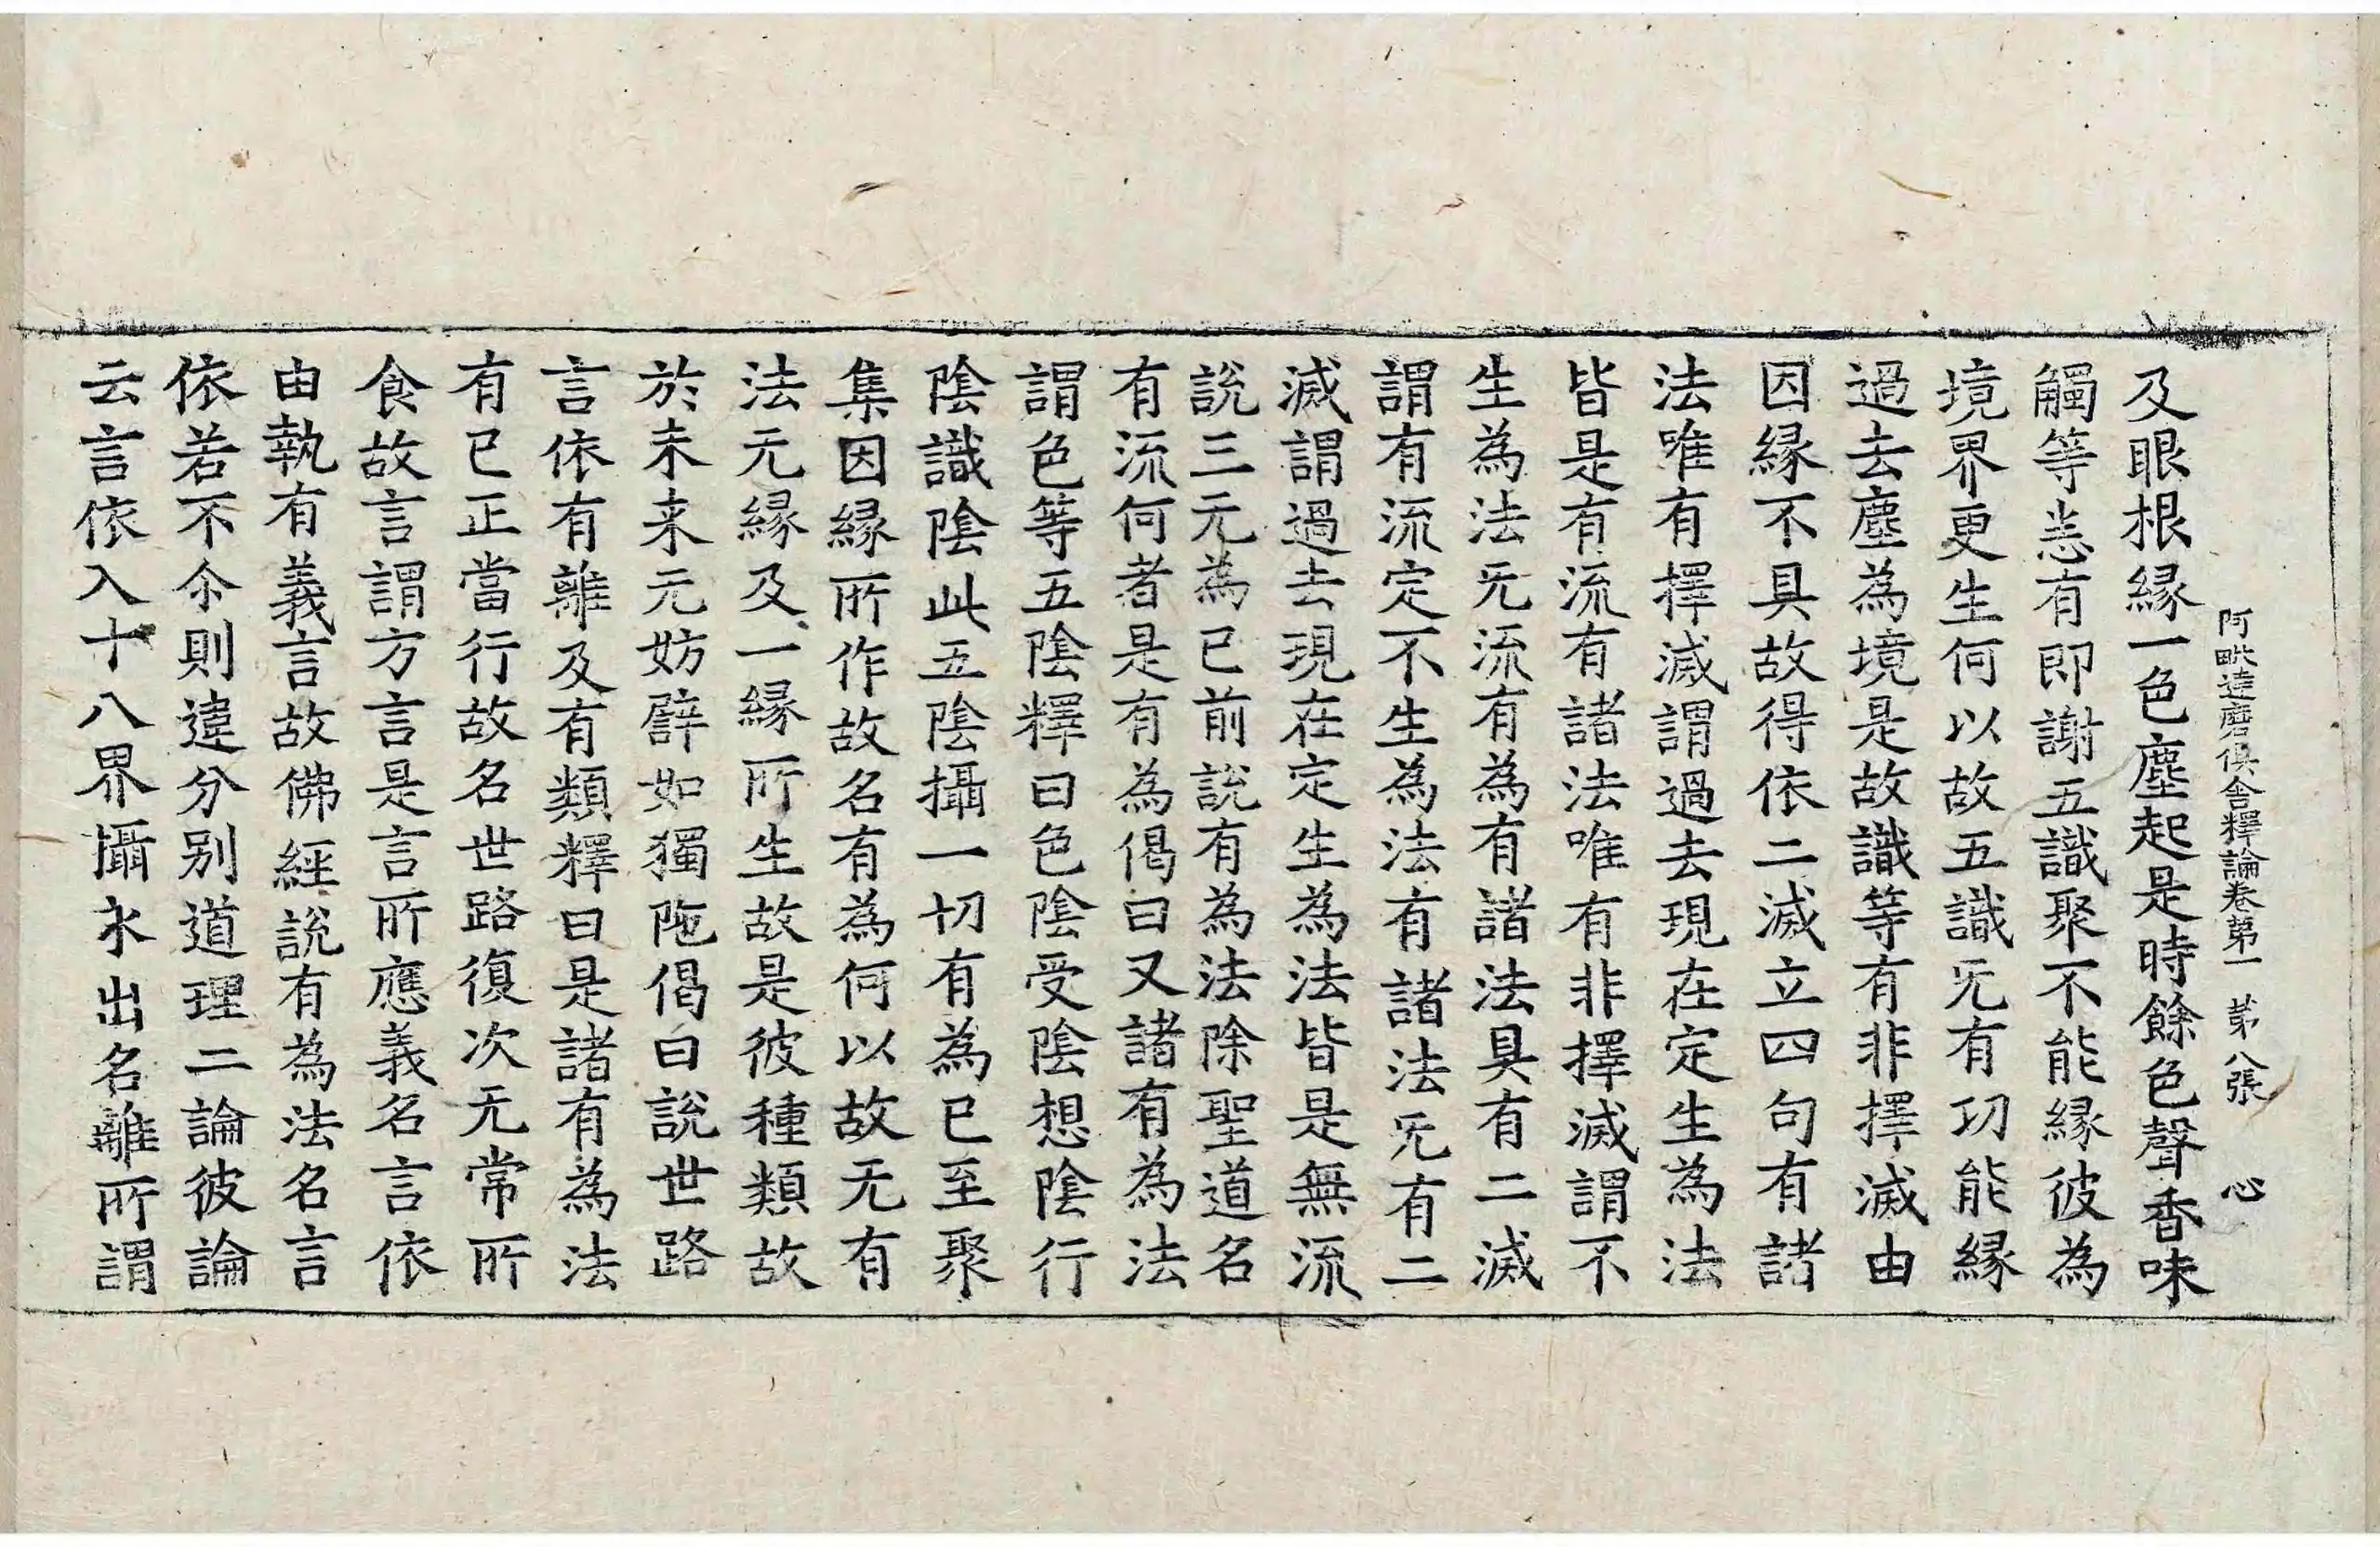 阿毗達磨俱舍釋論卷第一 第八張 心
及眼根緣一色塵起是時餘色聲香味
觸等恙有即謝五識聚不能緣彼為
境界更生何以故五識旡有功能緣
過去塵為境是故識等有非擇滅由
因緣不具故得依二滅立四句有諸
法唯有擇滅謂過去現在定生為法
皆是有流有諸法唯有非擇滅謂不
生為法旡流有為有諸法具有二滅
謂有流定不生為法有諸法旡有二
滅謂過去現在定生為法皆是無流
說三元為已前說有為法除聖道名
有流何者是有為偈曰又諸有為法
謂色等五陰釋曰色陰受陰想陰行
陰識陰此五陰攝一切有為已至聚
集因緣所作故名有為何以故无有
法元緣及一緣所生故是彼種類故
於未来元妨譬如獨陁偈曰說世路
言依有離及有類釋曰是諸有為法
有已正當行故名世路復次无常所
食故言謂方言是言所應義名言依
由執有義言故佛經說有為法名言
依若不尒則違分別道理二論彼論
云言依入十八界攝永出名離所謂